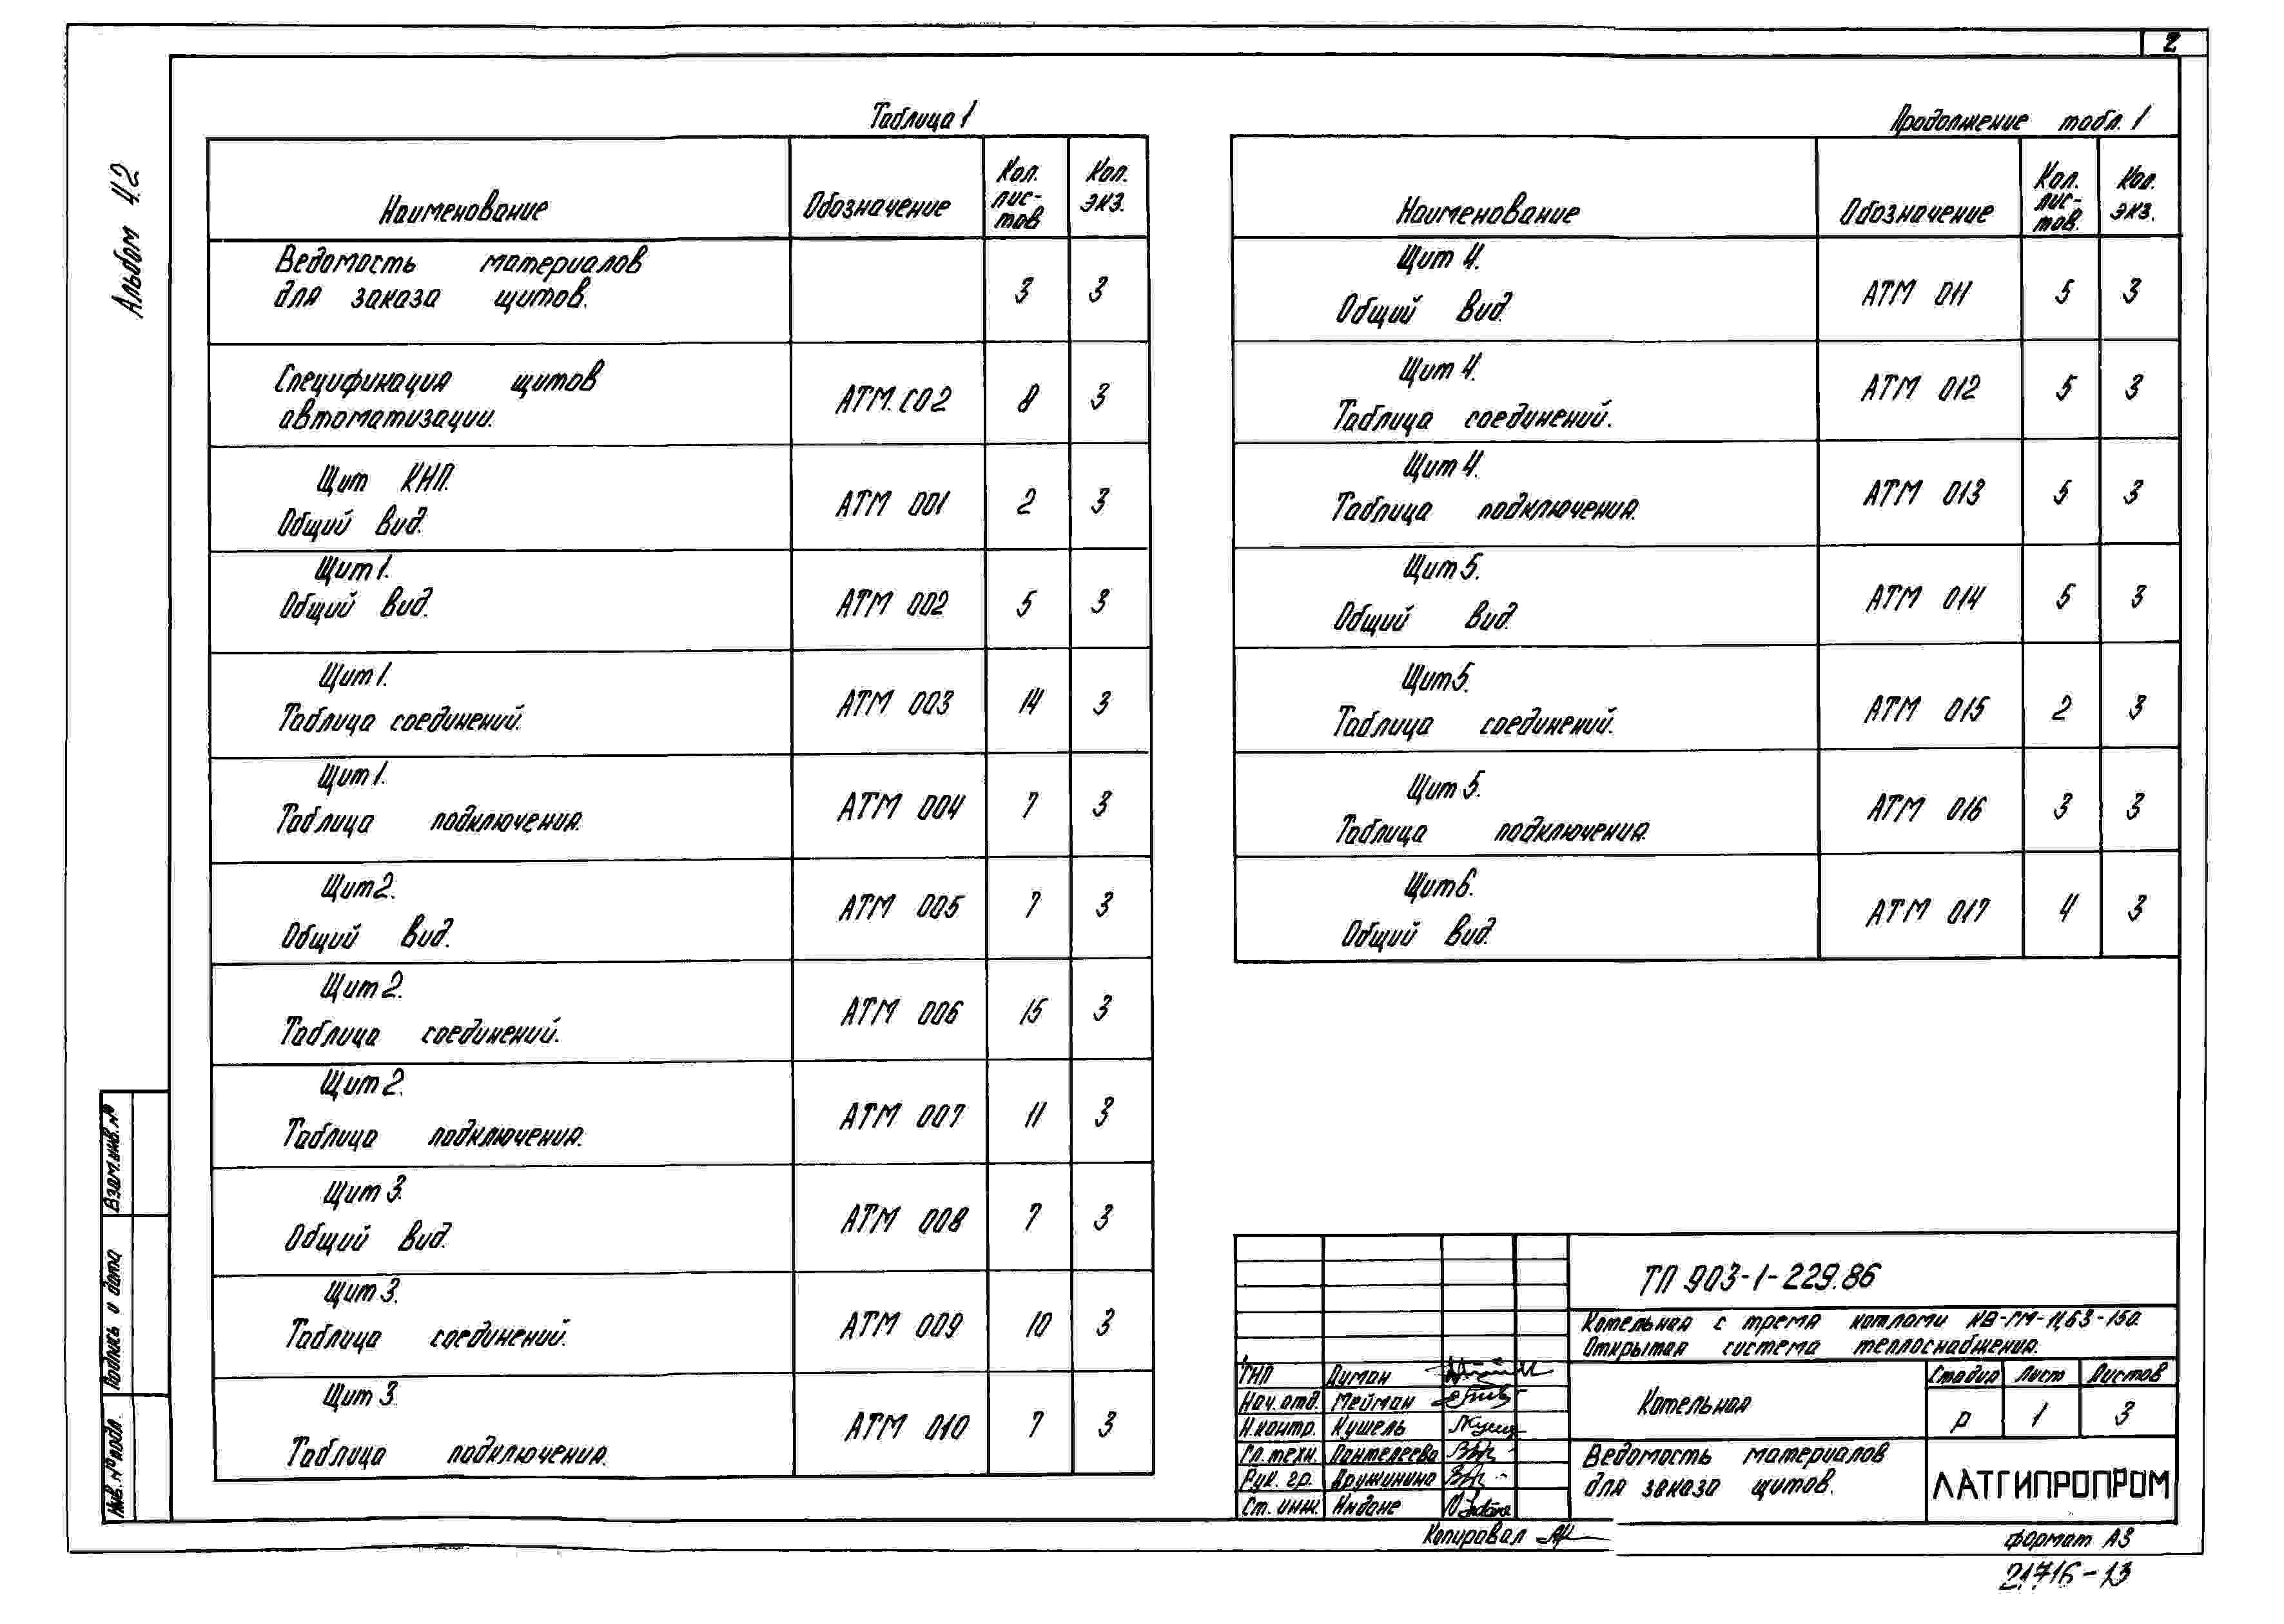 2
Альбом 4.2
Таблица 1
Наименование Обозначение Кол. лис-тов Кол. экз.
Ведомость материалов
для заказа щитов. 3 3
Спецификация щитов
автоматизации. АТМ.СО2 8 3
Щит КНП.
Общий вид. АТМ 001 2 3
Щит 1.
Общий вид. АТМ 002 5 3
Щит 1.
Таблица соединений. АТМ 003 14 3
Щит 1.
Таблица подключения. АТМ 004 7 3
Щит 2.
Общий вид. АТМ 005 7 3
Щит 2.
Таблица соединений. АТМ 006 15 3
Щит 2.
Таблица подключения. АТМ 007 11 3
Щит 3.
Общий вид. АТМ 008 7 3
Щит 3.
Таблица соединений. АТМ 009 10 3
Щит 3.
Таблица подключения. АТМ 010 7 3
Продолжение табл. 1
Наименование Обозначение Кол. лис-тов. Кол. экз.
Щит 4.
Общий вид АТМ 011 5 3
Щит 4.
Таблица соединений. АТМ 012 5 3
Щит 4.
Таблица подключения. АТМ 013 5 3
Щит 5.
Общий вид. АТМ 014 5 3
Щит 5.
Таблица соединений. АТМ 015 2 3
Щит 5.
Таблица подключения. АТМ 016 3 3
Щит 6.
Общий вид. АТМ 017 4 3
Взам.инв.№
Подпись и дата
Инв.№подл.
ТП 903-1-229.86
Котельная с тремя котлами КВ-ГМ-11,63-150.
Открытая система теплоснабжения.
ГИП Думан
Нач.отд. Мейман
Н.контр. Кушель
Гл.техн. Пантелеева
Рук. гр. Дружинина
Ст. инж. Индане
Котельная
Стадия Лист Листов
Р 1 3
Ведомость материалов
для заказа щитов.
ЛАТГИПРОПРОМ
Копировал
формат А3
21716-13